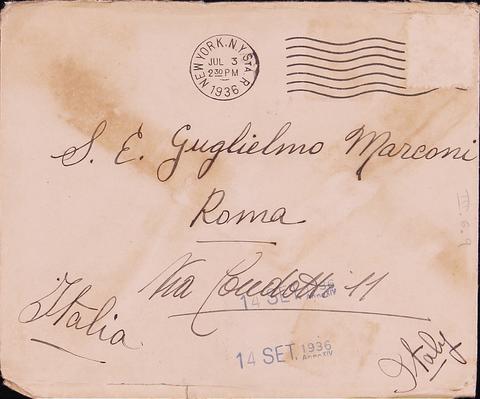 NEW YORK, N.Y. STA. R
JUL 3
2 30 PM
1936
S. E. Guglielmo Marconi
Roma
Via Condotti 11
14 SET. 1936
Anno XIV
Italia
14 SET. 1936
Anno XIV
Italy